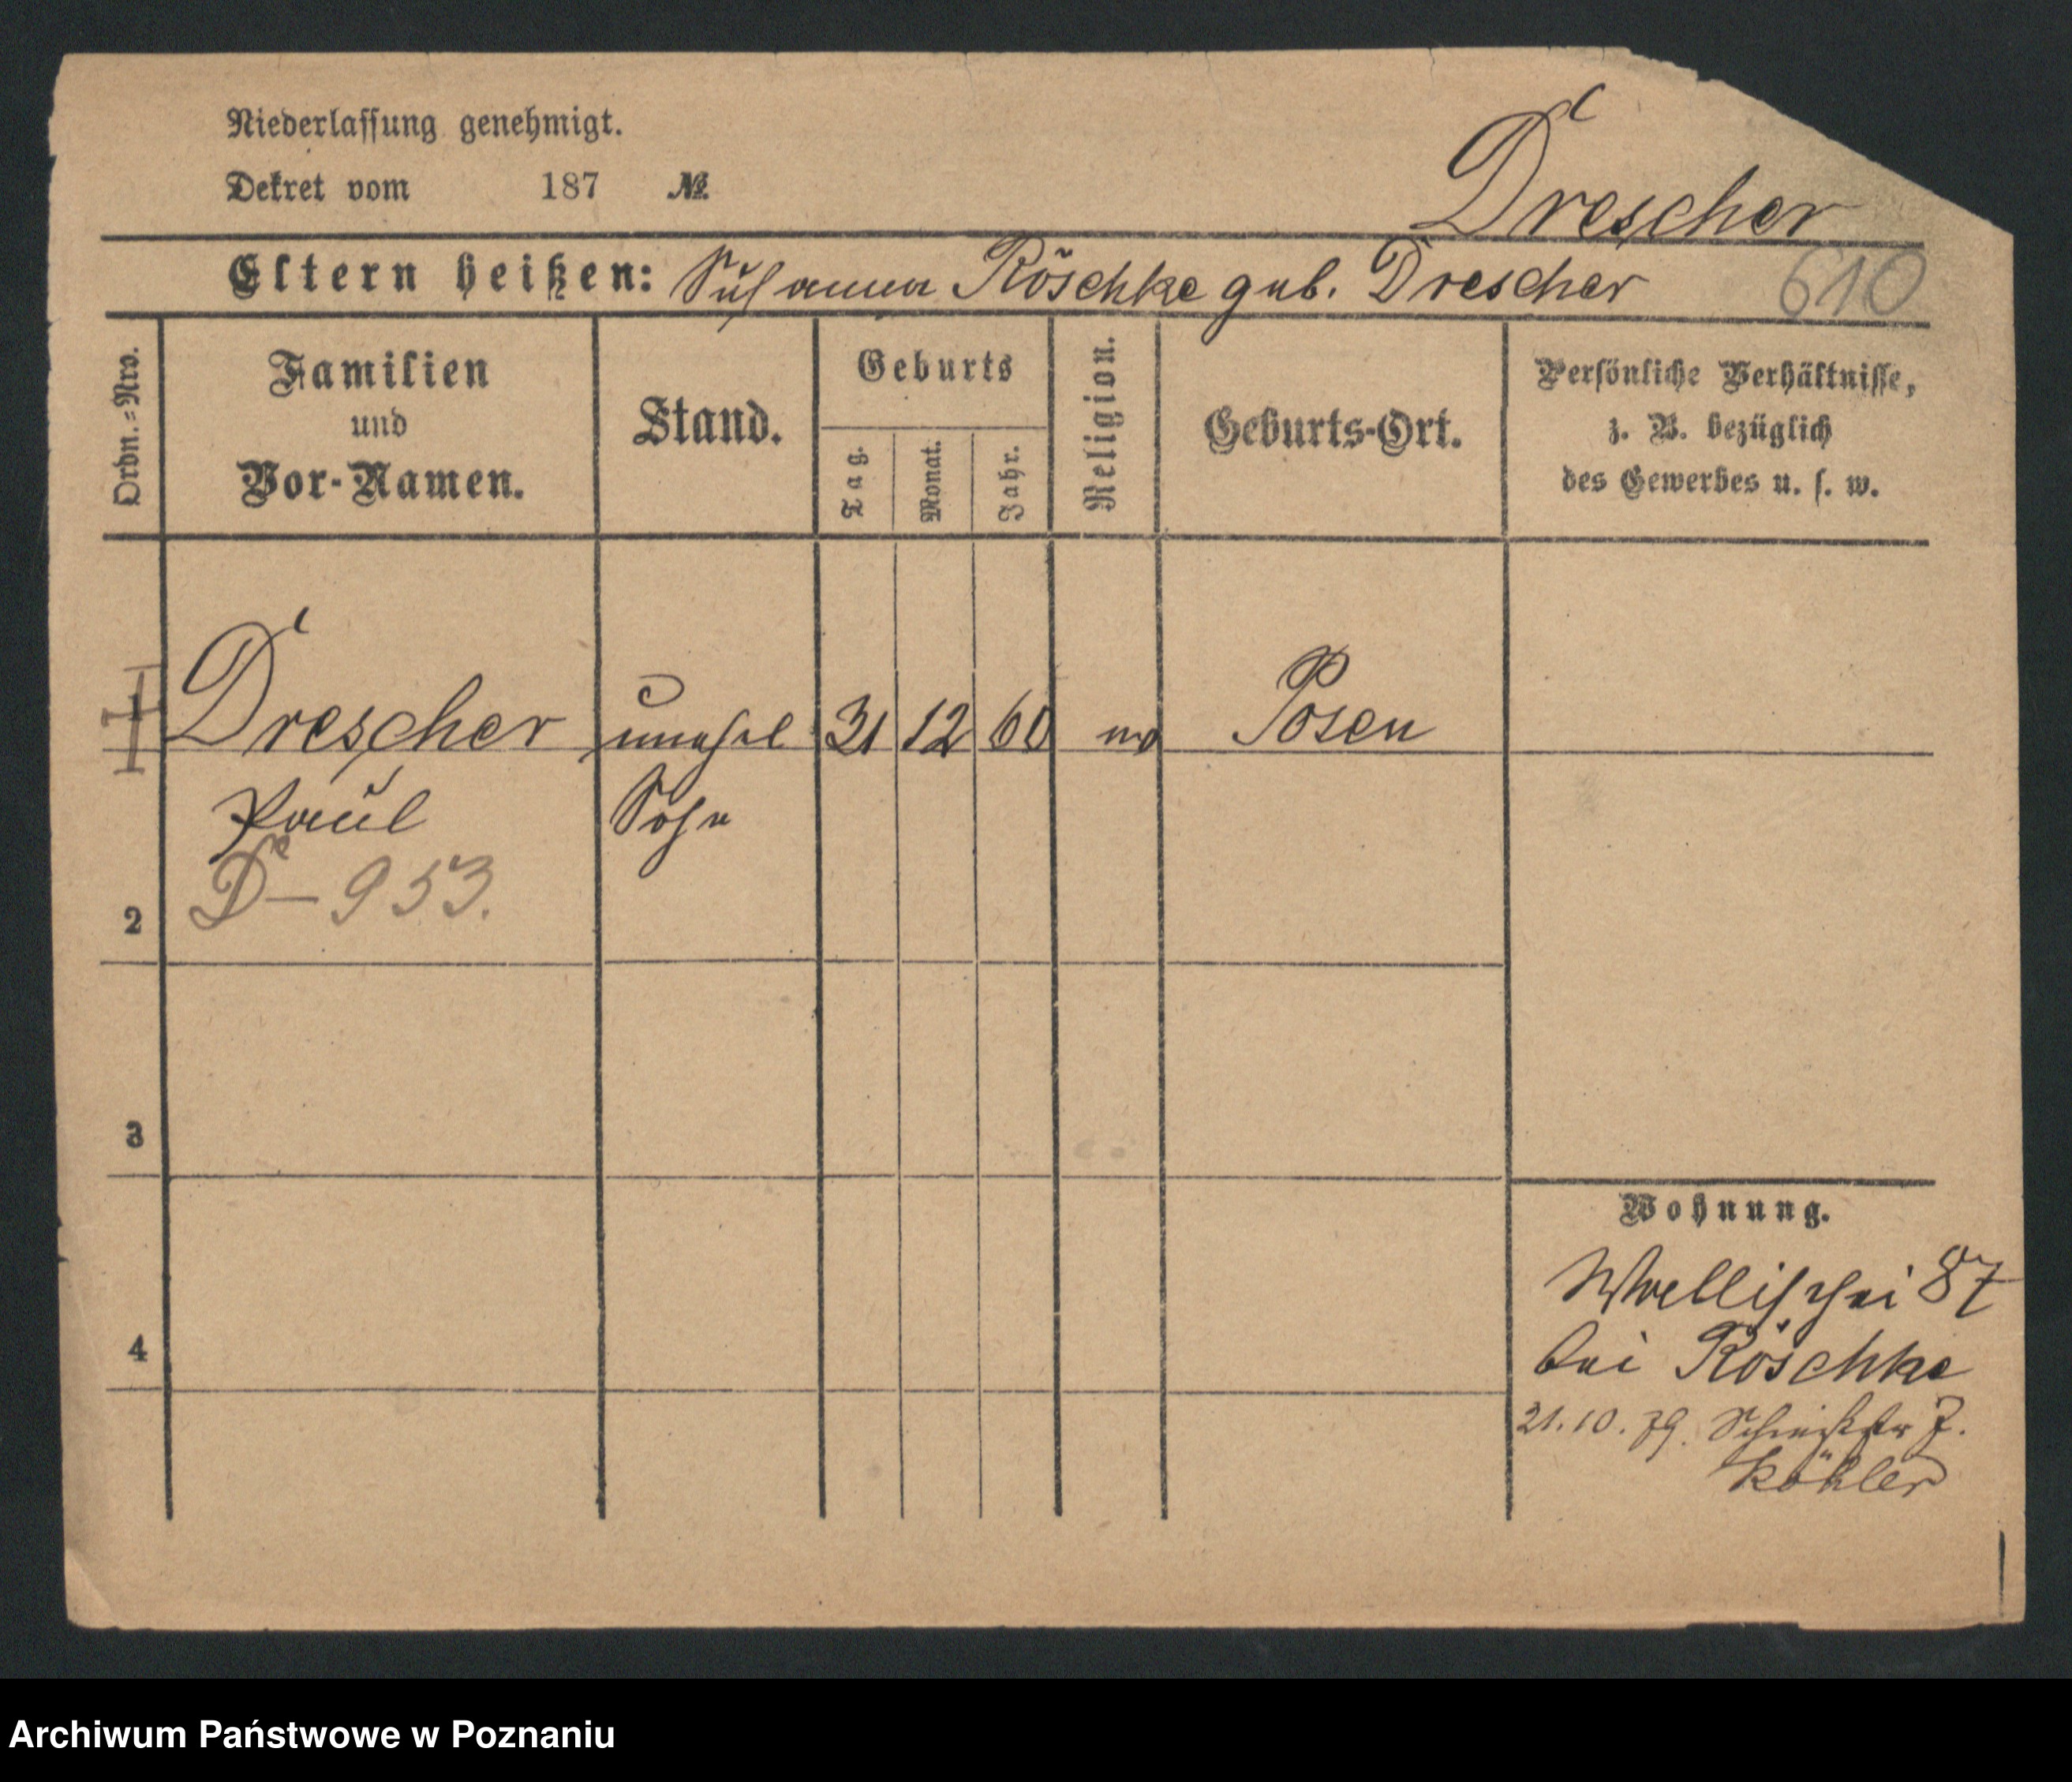 Niederlassung genehmigt.
Dekret vom 187 №
Drescher
Eltern heißen: Susanna Röschke geb. Drescher
610
Ordn.-Nrs.
Familien
und
Vor-Namen.
Stand.
Geburts
Tag.
Monat.
Jahr.
Religion.
Geburts-Ort.
Persönliche Verhältnisse,
z. B. bezüglich
des Gewerbes u. s. w.
1 Drescher unehel 31 12 60 Posen
Paul Sohn
D - 953.
2
3
4
Wohnung.
Wallischei 87
bei Röschke
21.10.79.
Köhler
Archiwum Państwowe w Poznaniu